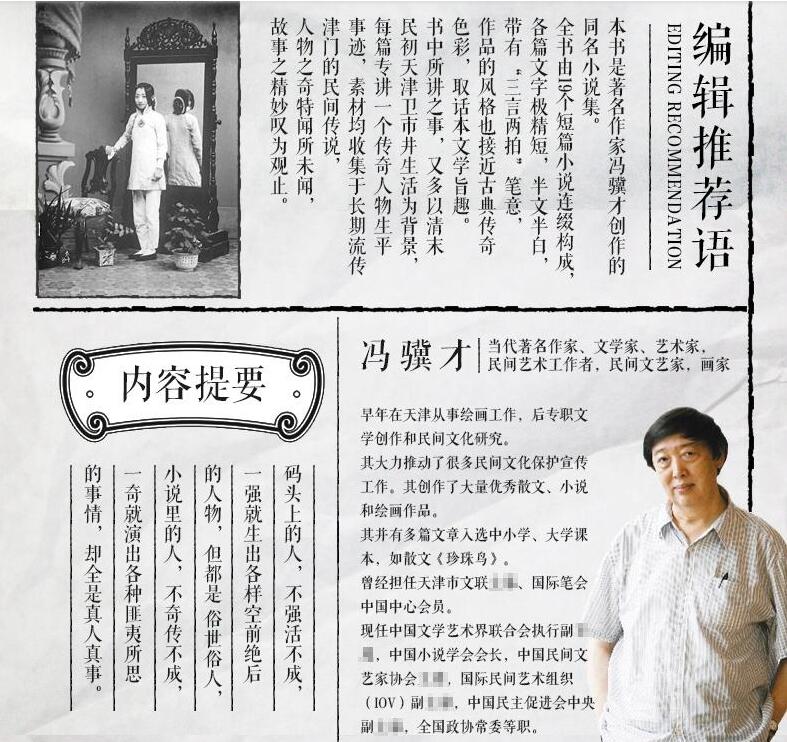 编辑推荐语
EDITING RECOMMENDATION
本书是著名作家冯骥才创作的
同名小说集。
全书由19个短篇小说连缀构成，
各篇文字极精短，半文半白，
带有“三言两拍”笔意，
作品的风格也接近古典传奇
色彩，取话本文学旨趣。
书中所讲之事，又多以清末
民初天津卫市井生活为背景，
每篇专讲一个传奇人物生平
事迹，素材均收集于长期流传
津门的民间传说，
人物之奇特闻所未闻，
故事之精妙叹为观止。
内容提要
码头上的人，不强活不成，
一强就生出各样空前绝后
的人物，但都是俗世俗人，
小说里的人，不奇传不成，
一奇就演出各种匪夷所思
的事情，却全是真人真事。
冯骥才
当代著名作家、文学家、艺术家，
民间艺术工作者，民间文艺家，画家
早年在天津从事绘画工作，后专职文
学创作和民间文化研究。
其大力推动了很多民间文化保护宣传
工作。其创作了大量优秀散文、小说
和绘画作品。
其并有多篇文章入选中小学、大学课
本，如散文《珍珠鸟》。
曾经担任天津市文联、国际笔会
中国中心会员。
现任中国文学艺术界联合会执行副
，中国小说学会会长，中国民间文
艺家协会，国际民间艺术组织
（IOV）副，中国民主促进会中央
副，全国政协常委等职。